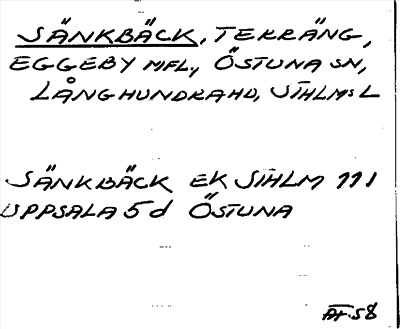 SÄNKBÄCK, TERRÄNG,
EGGEBY MFL., ÖSTUNA SN,
LÅNGHUNDRA HD, STHLMS L
SÄNKBÄCK EK STHLM 111
UPPSALA 5d ÖSTUNA
AF. 58